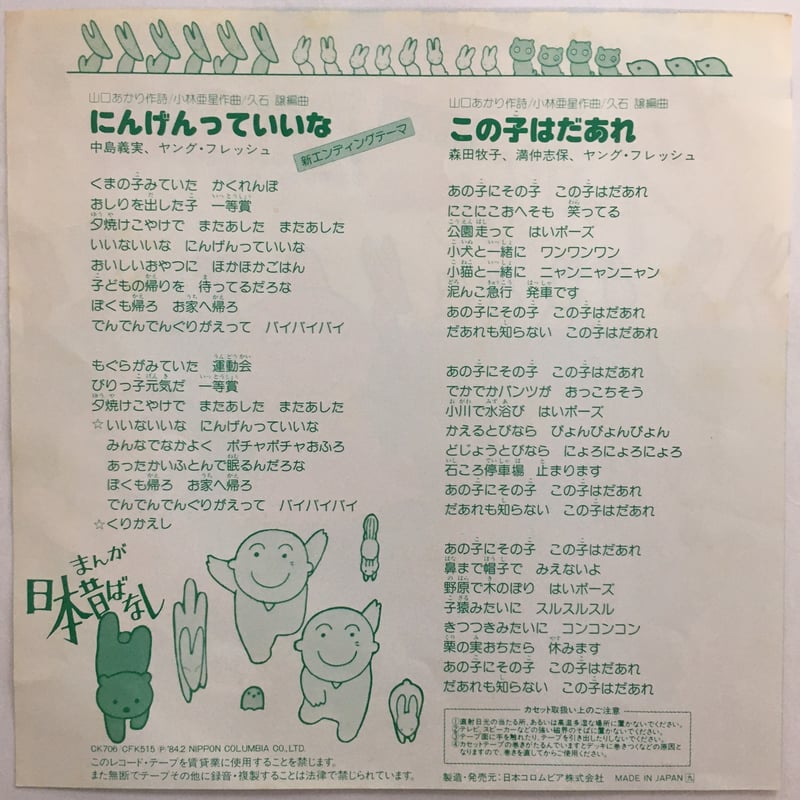 山口あかり作詩/小林亜星作曲/久石 譲編曲
にんげんっていいな
中島義実、ヤング・フレッシュ
新エンディングテーマ
くまの子みていた かくれんぼ
おしりを出した子 一等賞
夕焼けこやけで またあした またあした
いいないいな にんげんっていいな
おいしいおやつに ほかほかごはん
子どもの帰りを 待ってるだろな
ぼくも帰ろ お家へ帰ろ
でんでんでんぐりがえって バイバイバイ
もぐらがみていた 運動会
びりっ子元気だ 一等賞
夕焼けこやけで またあした またあした
☆いいないいな にんげんっていいな
みんなでなかよく ポチャポチャおふろ
あったかいふとんで眠るんだろな
ぼくも帰ろ お家へ帰ろ
でんでんでんぐりがえって バイバイバイ
☆くりかえし
まんが
日本昔ばなし
CK706 CFK515 Ⓟ'84.2 NIPPON COLUMBIA CO.,LTD.
このレコード・テープを賃貸業に使用することを禁じます。
また無断でテープその他に録音・複製することは法律で禁じられています。
山口あかり作詩/小林亜星作曲/久石 譲編曲
この子はだあれ
森田牧子、満仲志保、ヤング・フレッシュ
あの子にその子 この子はだあれ
にこにこおへそも 笑ってる
公園走って はいポーズ
小犬と一緒に ワンワンワン
小猫と一緒に ニャンニャンニャン
泥んこ急行 発車です
あの子にその子 この子はだあれ
だあれも知らない この子はだあれ
あの子にその子 この子はだあれ
でかでかパンツが おっこちそう
小川で水浴び はいポーズ
かえるとびなら ぴょんぴょんぴょん
どじょうとびなら にょろにょろにょろ
石ころ停車場 止まります
あの子にその子 この子はだあれ
だあれも知らない この子はだあれ
あの子にその子 この子はだあれ
鼻まで帽子で みえないよ
野原で木のぼり はいポーズ
子猿みたいに スルスルスル
きつつきみたいに コンコンコン
栗の実おちたら 休みます
あの子にその子 この子はだあれ
だあれも知らない この子はだあれ
カセット取扱い上のご注意
①直射日光の当たる所、あるいは高温多湿な場所に置かないでください。
②テレビ、スピーカーなどの強い磁界のそばに置かないでください。
③テープ面に手を触れたり、テープを引き出したりしないでください。
④カセットテープの巻きがたるんでいますとデッキに巻きつくなどの原因と
なりますので、巻きを直してからご使用ください。
製造・発売元:日本コロムビア株式会社 MADE IN JAPAN